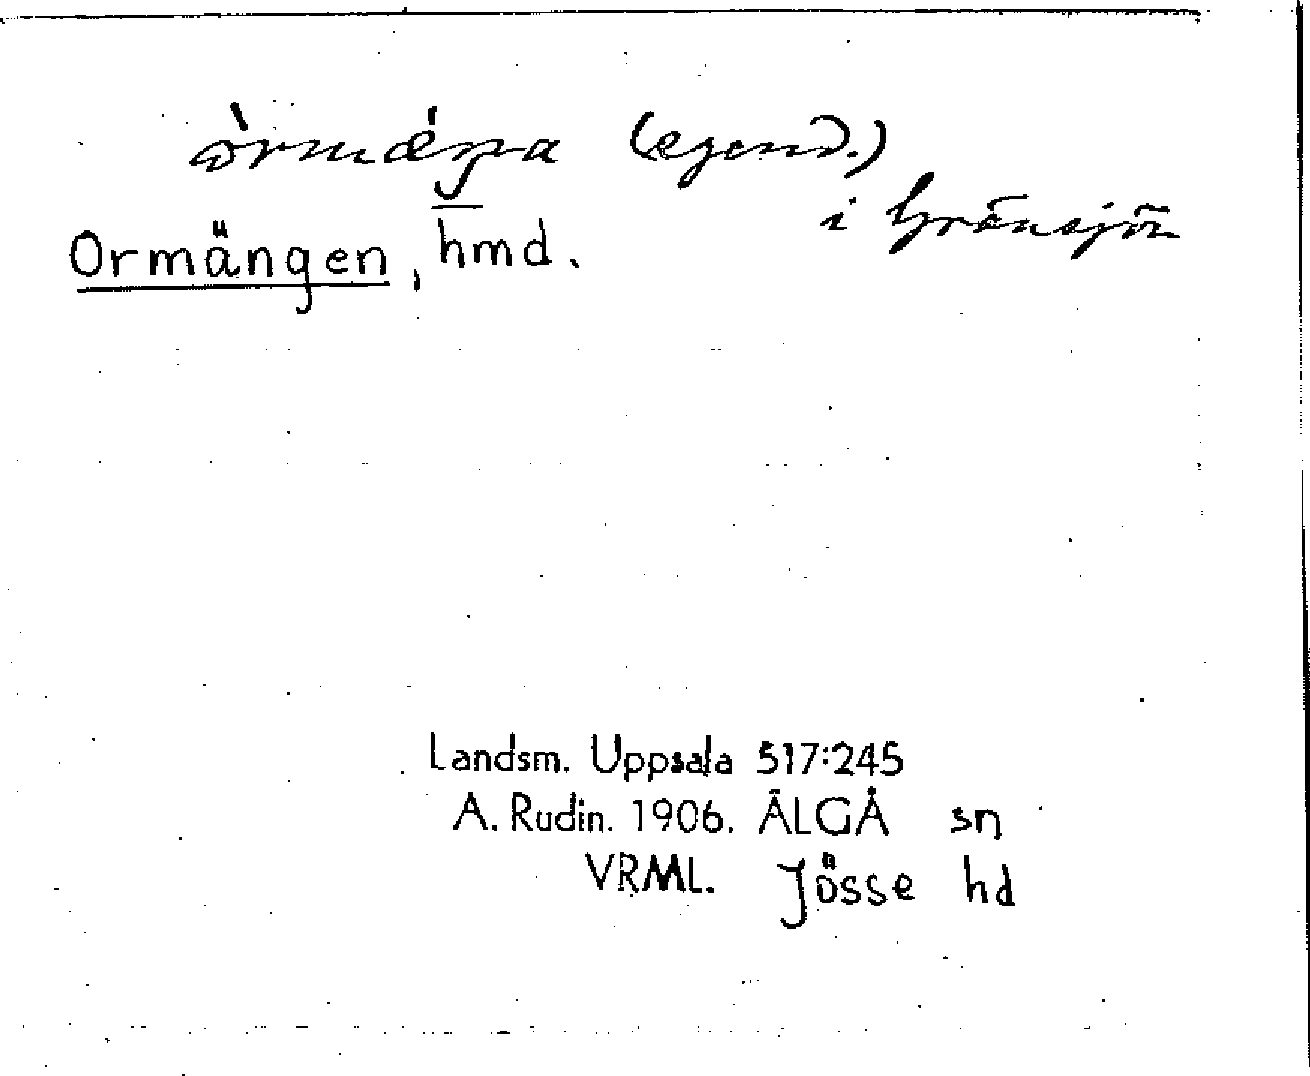 òrmǽŋa (egend.)
i Gränsjön
Ormängen, hmd.
Landsm. Uppsala 517:245
A. Rudin. 1906. ÄLGÅ sn
VRML. Jösse hd